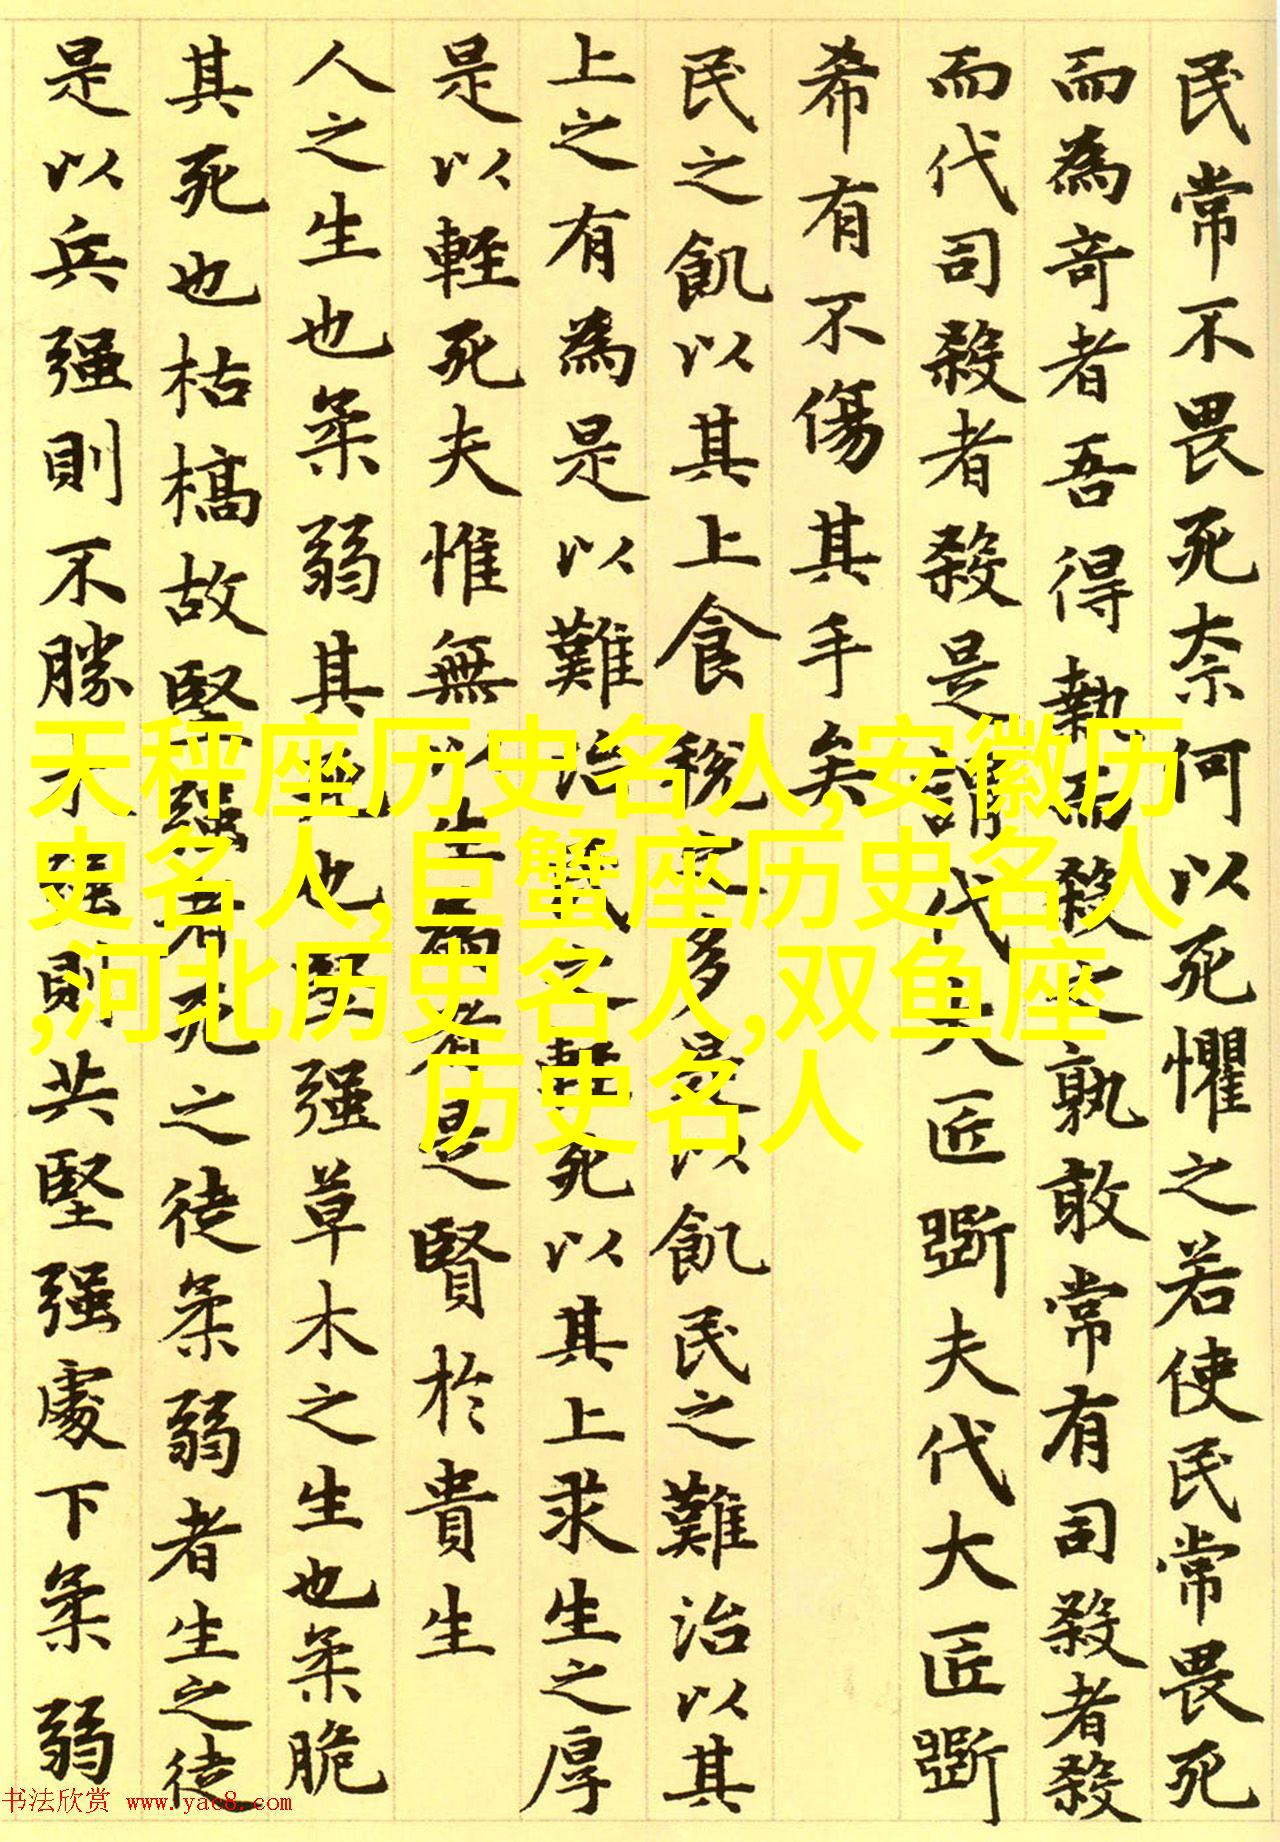 民常不畏死奈何以死懼之若使民常畏死
而為奇者吾得執而殺之孰敢常有司殺者殺
而代司殺者殺是謂代大匠斲夫代大匠斲
希有不傷其手矣
民之飢以其上食稅之多是以飢民之難治以其
上之有為是以難治民之輕死以其上求生之厚
是以輕死夫惟無以生為者是賢於貴生
人之生也柔弱其死也堅强草木之生也柔脆
其死也枯槁故堅强者死之徒柔弱者生之徒
是以兵强則不勝木强則共堅强處下柔弱
天秤座历史名人,安徽历
史名人,巨蟹座历史名人
,河北历史名人,双鱼座
历史名人
书法欣赏 www.yac8.com